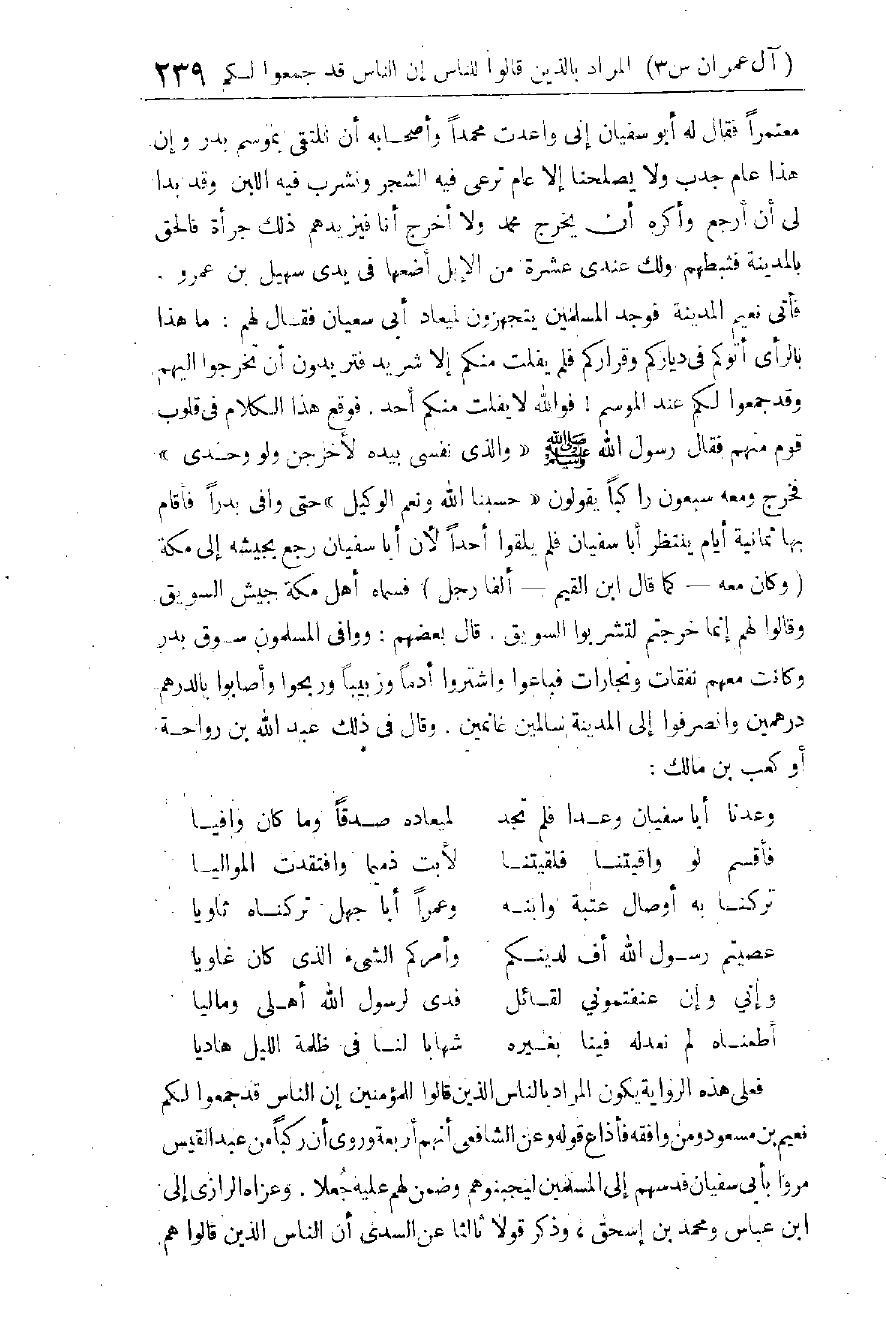 ( آل عمران س٣) المراد بالذين قالوا للناس إن الناس قد جمعوا لـكم ٢٣٩
معتمراً فقال له أبو سفيان إنى واعدت محمداً وأصحـابه أن نلتقى بموسم بدر وإن
هذا عام جدب ولا يصلحنا إلا عام نرعى فيه الشجر ونشرب فيه اللبن وقد بدا
لى أن أرجع وأكره أن يخرج محمد ولا أخرج أنا فيزيدهم ذلك جرأة فالحق
بالمدينة فثبطهم ولك عندى عشرة من الإبل أضعها فى يدى سهيل بن عمرو .
فأتى نعيم المدينة فوجد المسلمين يتجهزون لميعاد أبى سعيان فقـال لهم : ما هذا
بالرأى أتوكم فى دياركم وقراركم فلم يفلت منكم إلا شريد فتريدون أن تخرجوا اليهم
وقد جمعوا لـكم عند الموسم ! فوالله لا يفلت منكم أحد . فوقع هذا الـكلام فى قلوب
قوم منهم فقال رسول الله ﷺ « والذى نفسى بيده لأخرجن ولو وحـدى »
فخرج ومعه سبعون راكباً يقولون « حسبنا الله ونعم الوكيل » حتى وافى بدراً فأقام
بها ثمانية أيام ينتظر أبا سفيان فلم يلقوا أحداً لأن أبا سفيان رجع بجيشه إلى مكة
( وكان معه — كما قال ابن القيم — ألفا رجل ) فسماه أهل مكة جيش السويق
وقالوا لهم إنما خرجتم لتشربوا السويق . قال بعضهم : ووافى المسلمون سـوق بدر
وكانت معهم نفقات وتجارات فباعوا واشتروا أدماً وزبيباً وربحوا وأصابوا بالدرهم
درهمين وانصرفوا إلى المدينة سالمين غانمين . وقال فى ذلك عبد الله بن رواحـة
أو كعب بن مالك :
وعدنا أبا سفيان وعـدا فلم نجد لميعاده صـدقاً وما كان وافيـا
فأقسم لو وافيتنـا فلقيتنـا لأبت ذميما وافتقدت المواليـا
تركنـا به أوصال عتبة وابنـه وعمراً أبا جهل تركنـاه ثاويا
عصيتم رسـول الله أف لدينـكم وأمركم الشىء الذى كان غاويا
وإني وإن عنفتموني لقـائل فدى لرسول الله أهـلى وماليا
أطعنـاه لم نعدله فينا بغـيره شهابا لنـا فى ظلمة الليل هاديا
فعلى هذه الرواية يكون المراد بالناس الذين قالوا للمؤمنين إن الناس قد جمعوا لـكم
نعيم بن مسعود ومن وافقه فأذاع قوله وعن الشافعى أنهم أربعة وروى أن ركباً من عبد القيس
مروا بأبى سفيان فدسهم إلى المسلمين ليجبنوهم وضمن لهم عليه جُعلا . وعزاه الرازى إلى
ابن عباس ومحمد بن إسحق ، وذكر قولا ثالثا عن السدى أن الناس الذين قالوا هم